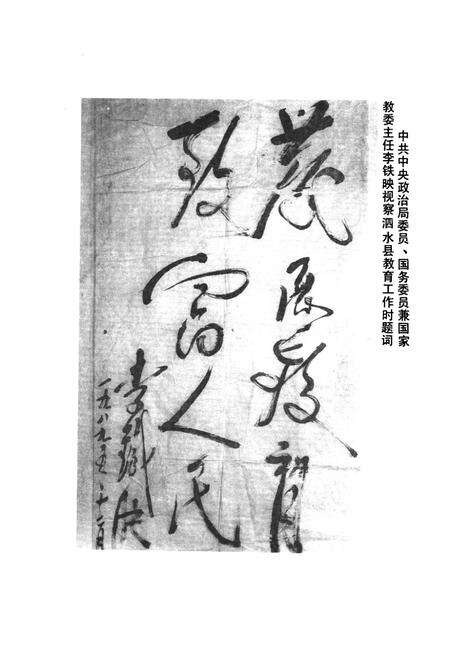 中共中央政治局委员、国务委员兼国家
教委主任李铁映视察泗水县教育工作时题词
發展教育
致富人民
李鐵映
一九八九